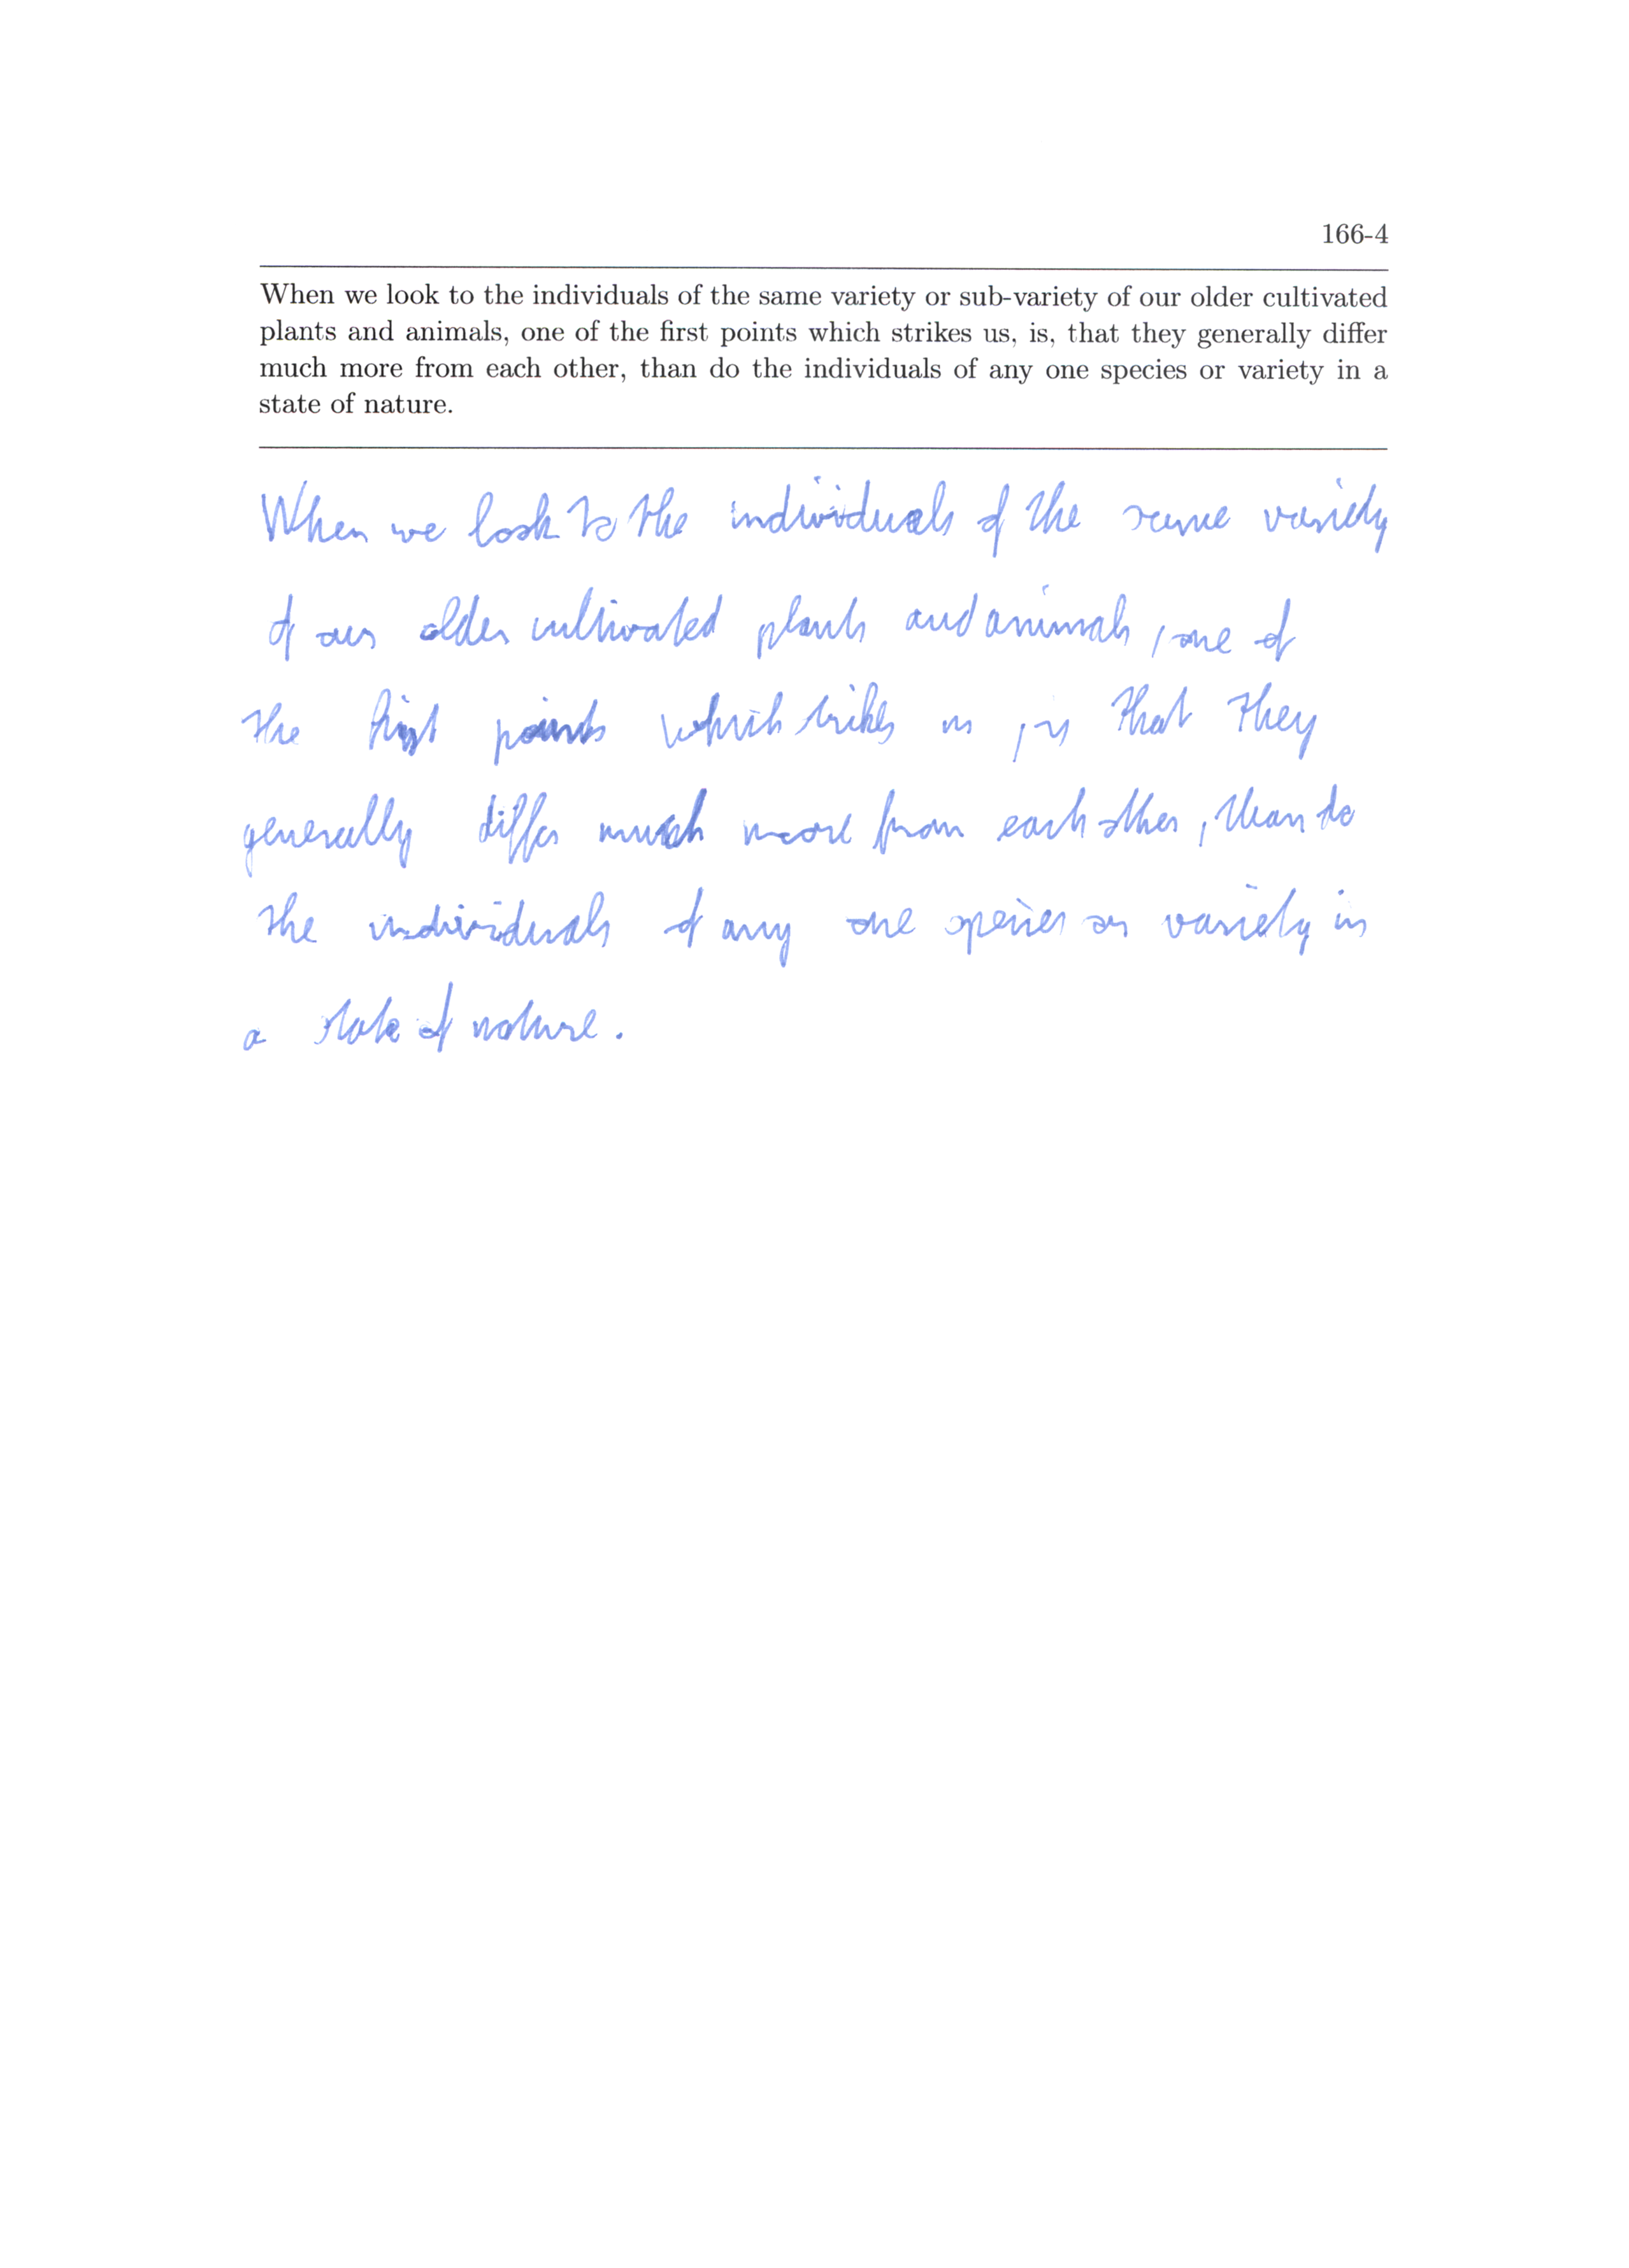 166-4
When we look to the individuals of the same variety or sub-variety of our older cultivated
plants and animals, one of the first points which strikes us, is, that they generally differ
much more from each other, than do the individuals of any one species or variety in a
state of nature.
When we look to the individuals of the same variety
of our older cultivated plants and animals, one of
the first points which trikes us , is that they
generally differ much more from each other, than do
the individuals of any one species or variety in
a state of nature.